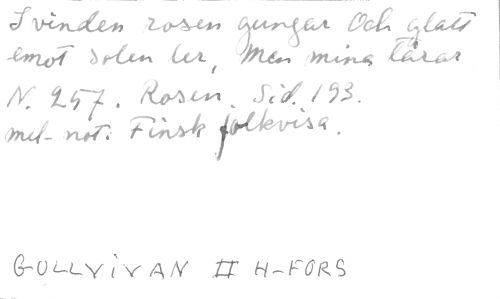 I vinden rosen gungar Och glatt
emot solen ler, Men mina tårar
N. 257. Rosen. Sid. 193.
mel-not. Finsk folkvisa.
GULLVIVAN II H-FORS